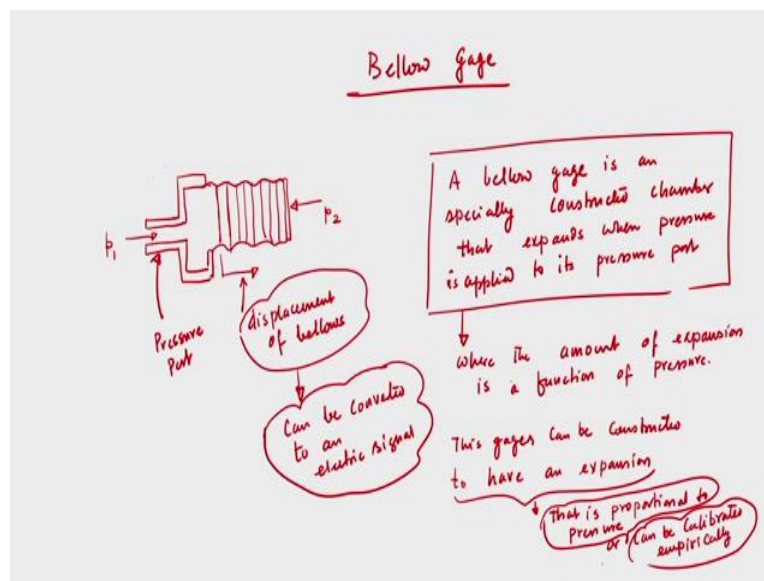 Bellow Gage
p1
p2
Pressure
Port
displacement
of bellows
Can be converted
to an
electric signal
A bellow gage is an
specially constructed chamber
that expands when pressure
is applied to its pressure port
where the amount of expansion
is a function of pressure.
This gages can be constructed
to have an expansion
That is proportional to
pressure
or can be calibrated
empirically